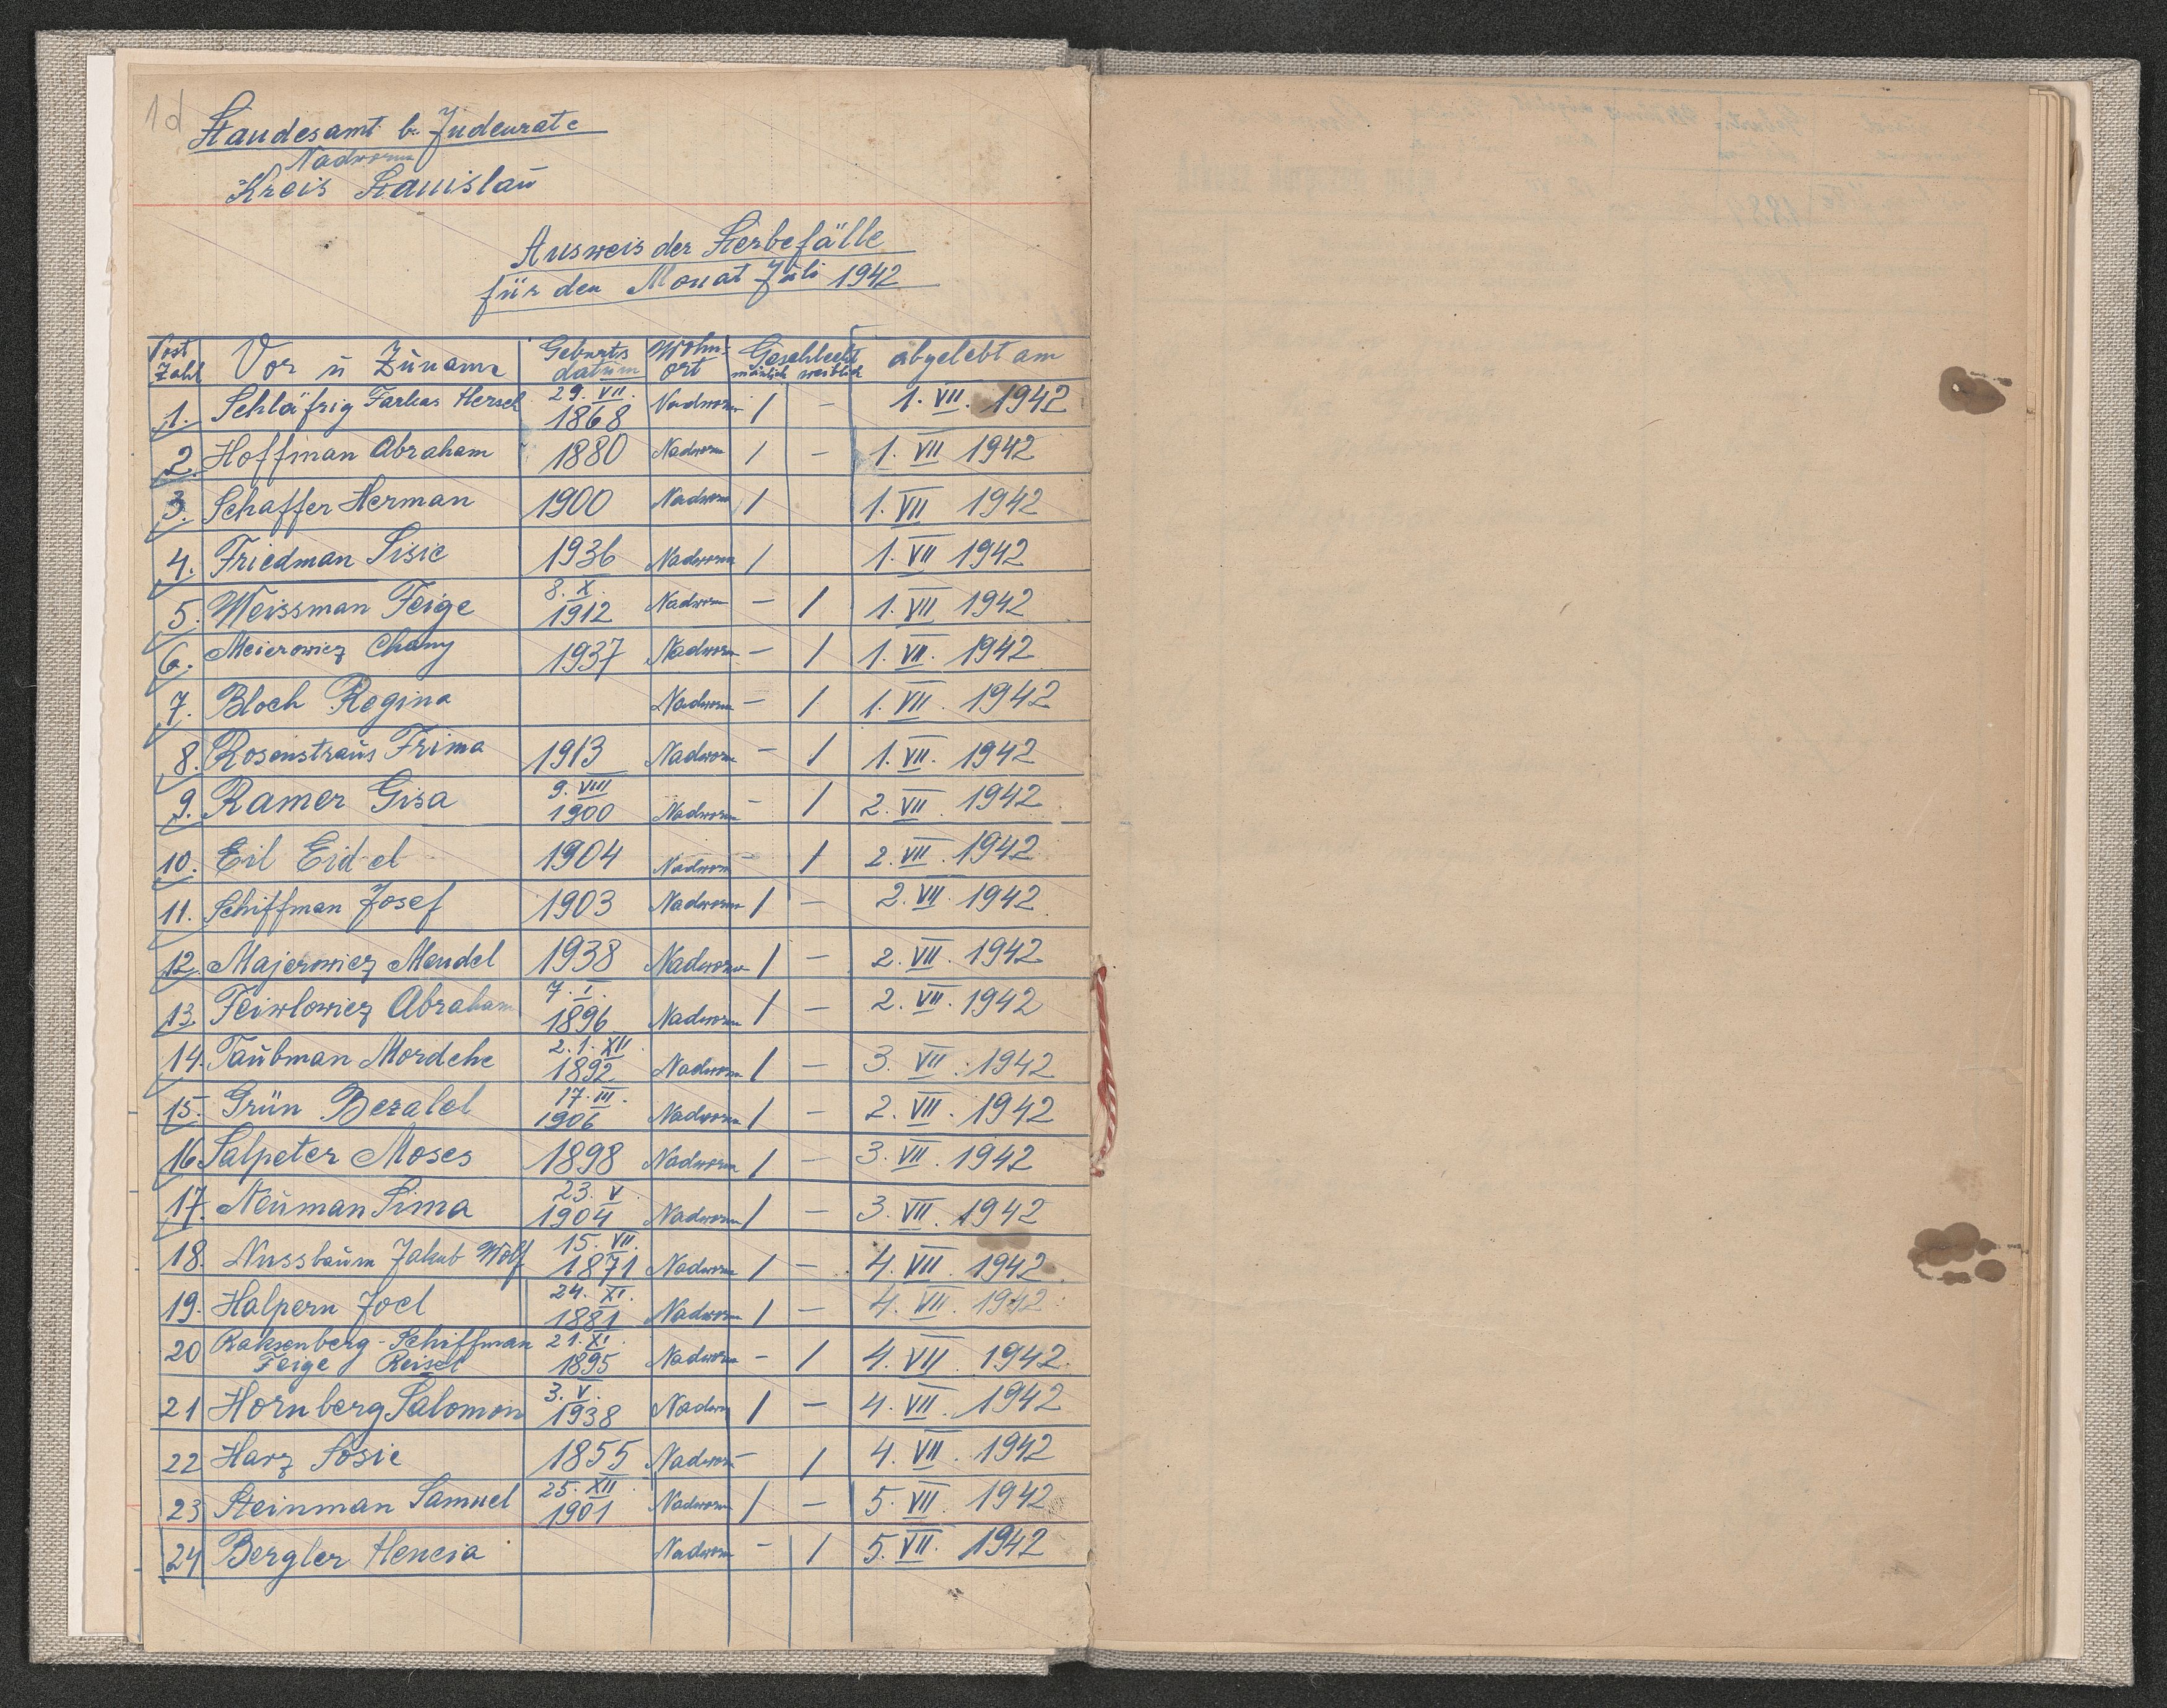 1d
Standesamt b. Judenrate
Nadworna
Kreis Stanislau
Ausweis der Sterbefälle
für den Monat Juli 1942
Post Zahl Vor u Zuname Geburts datum Wohn- ort Geschlecht mänlich weiblich abgelebt am
1. Schläfrig Farkas Hersch 29. VII. 1868 Nadworna / – 1. VII. 1942
2. Hoffman Abraham 1880 Nadworna / – 1. VII 1942
3. Schaffer Herman 1900 Nadworna / 1. VII 1942
4. Friedman Sisie 1936 Nadworna / 1. VII 1942
5. Weissman Feige 8. X. 1912 Nadworna – / 1. VII 1942
6. Meierowicz Chany 1937 Nadworna – / 1. VII. 1942
7. Bloch Regina Nadworna – / 1. VII. 1942
8. Rosenstraus Frima 1913 Nadworna – / 1. VII. 1942
9. Ramer Gisa 9. VIII 1900 Nadworna – / 2. VII. 1942
10. Eil Eidel 1904 Nadworna – / 2. VII. 1942
11. Schiffman Josef 1903 Nadworna / – 2. VII. 1942
12. Majerowicz Mendel 1938 Nadworna / – 2. VII. 1942
13. Feiwlowicz Abraham 7. I. 1896 Nadworna / – 2. VII. 1942
14. Taubman Mordche 2.1. XII. 1892 Nadworna / – 3. VII. 1942
15. Grün Bezalel 17. III. 1906 Nadworna / – 2. VII. 1942
16 Salpeter Moses 1898 Nadworna / – 3. VII. 1942
17. Neuman Sima 23. V. 1904 Nadworna / – 3. VII. 1942
18. Nussbaum Jakub Wolf 15. VII. 1871 Nadworna / – 4. VII. 1942
19. Halpern Joel 24. XI. 1881 Nadworna / – 4. VII. 1942
20 Raksenberg-Schiffman 21. XI. 1895 Nadworna – / 4. VII. 1942
Feige Reisel
21 Hornberg Salomon 3. V. 1938 Nadworna / – 4. VII. 1942
22 Harz Sosie 1855 Nadworna – / 4. VII. 1942
23 Steinman Samuel 25. XII. 1901 Nadworna / – 5. VII. 1942
24 Bergler Hencia Nadworna – / 5. VII. 1942